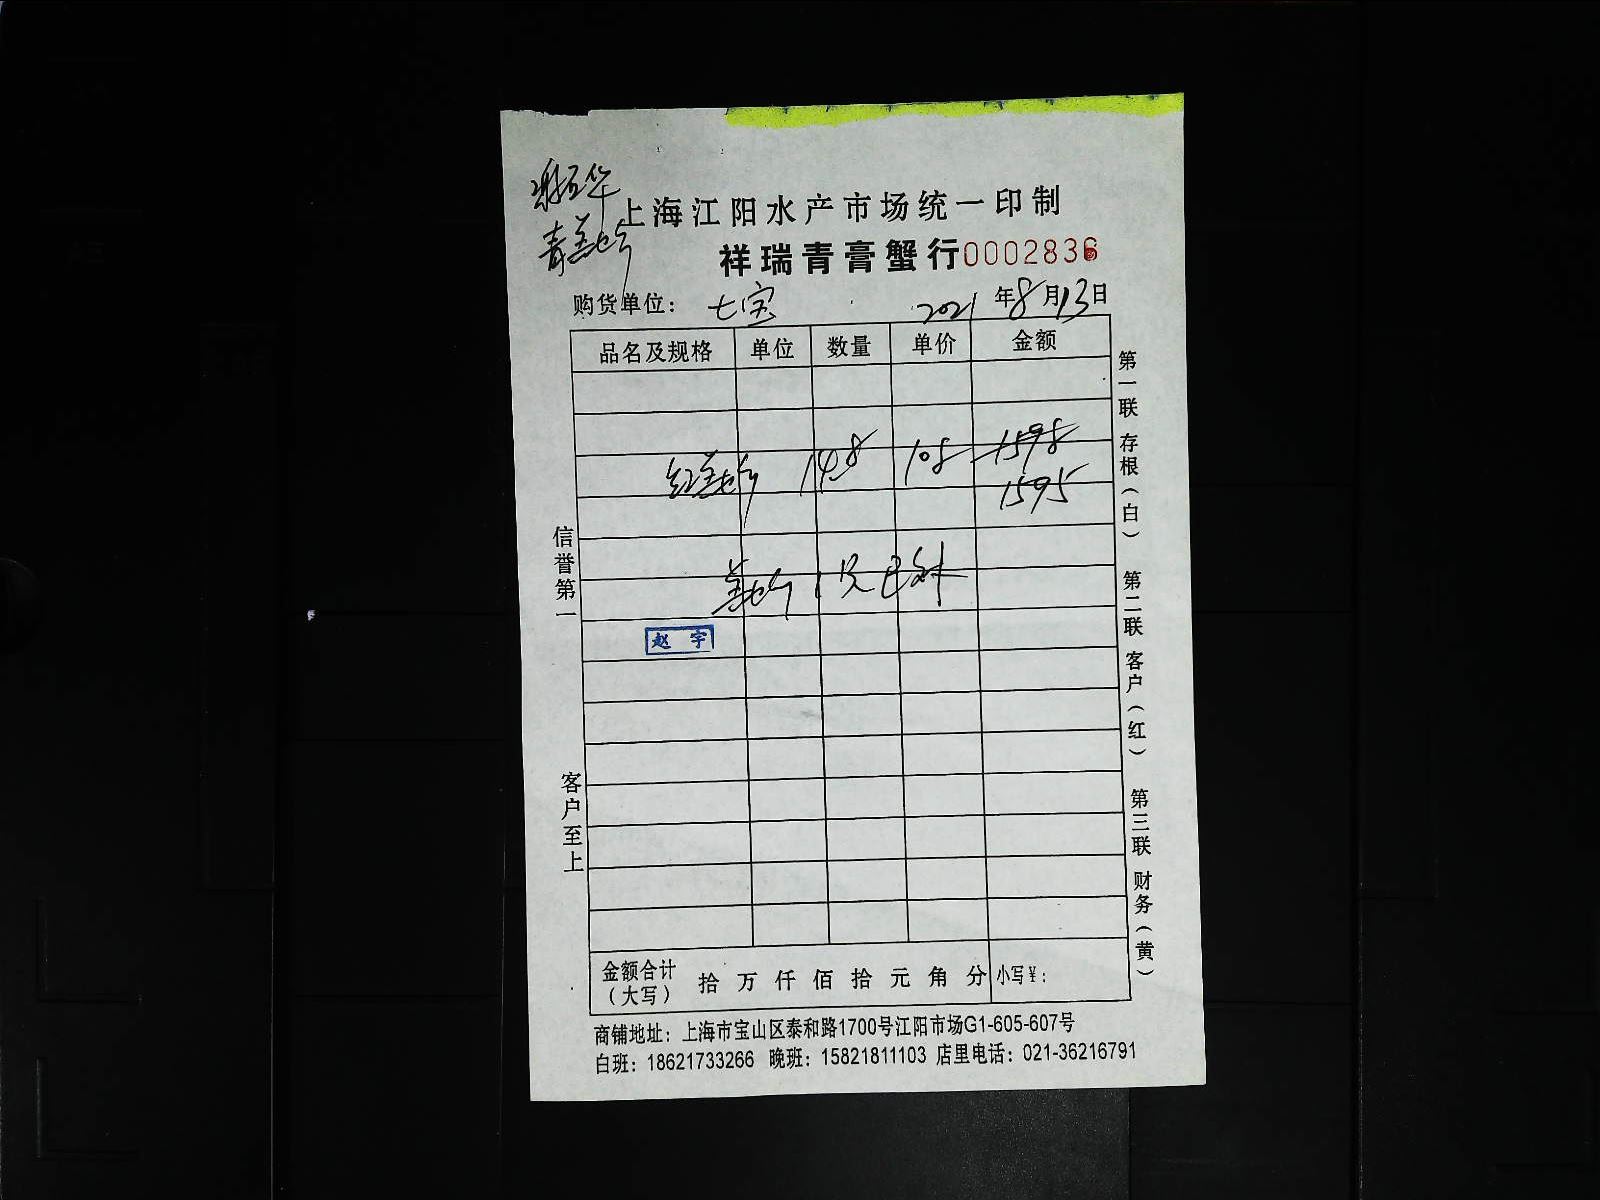 上海江阳水产市场统一印制
祥瑞青膏蟹行0002836
购货单位：七宝 2021年8月13日
品名及规格 单位 数量 单价 金额
148 108 1598
1595
赵宇
信誉第一
客户至上
第一联存根（白）
第二联客户（红）
第三联财务（黄）
金额合计（大写） 拾 万 仟 佰 拾 元 角 分 小写￥：
商铺地址：上海市宝山区泰和路1700号江阳市场G1-605-607号
白班：18621733266 晚班：15821811103 店里电话：021-36216791